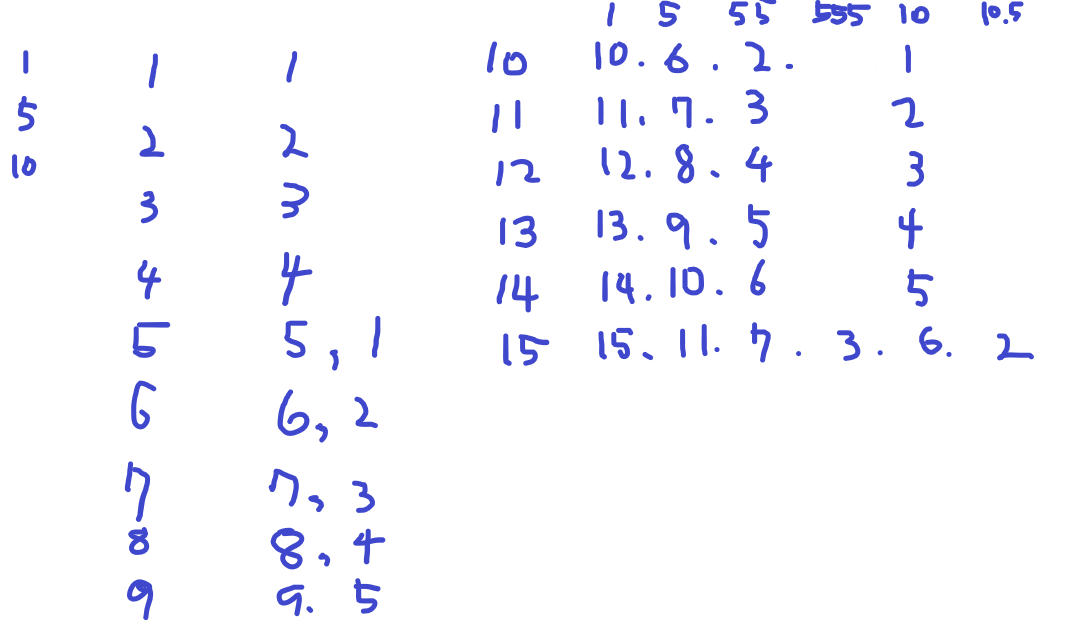 1 5 55 555 10 10.5
1 1 1 10 10. 6. 2. 1
5 2 2 11 11. 7. 3 2
10 3 3 12 12. 8. 4 3
4 4 13 13. 9. 5 4
5 5, 1 14 14. 10. 6 5
6 6, 2 15 15. 11. 7. 3. 6. 2
7 7, 3
8 8, 4
9 9. 5